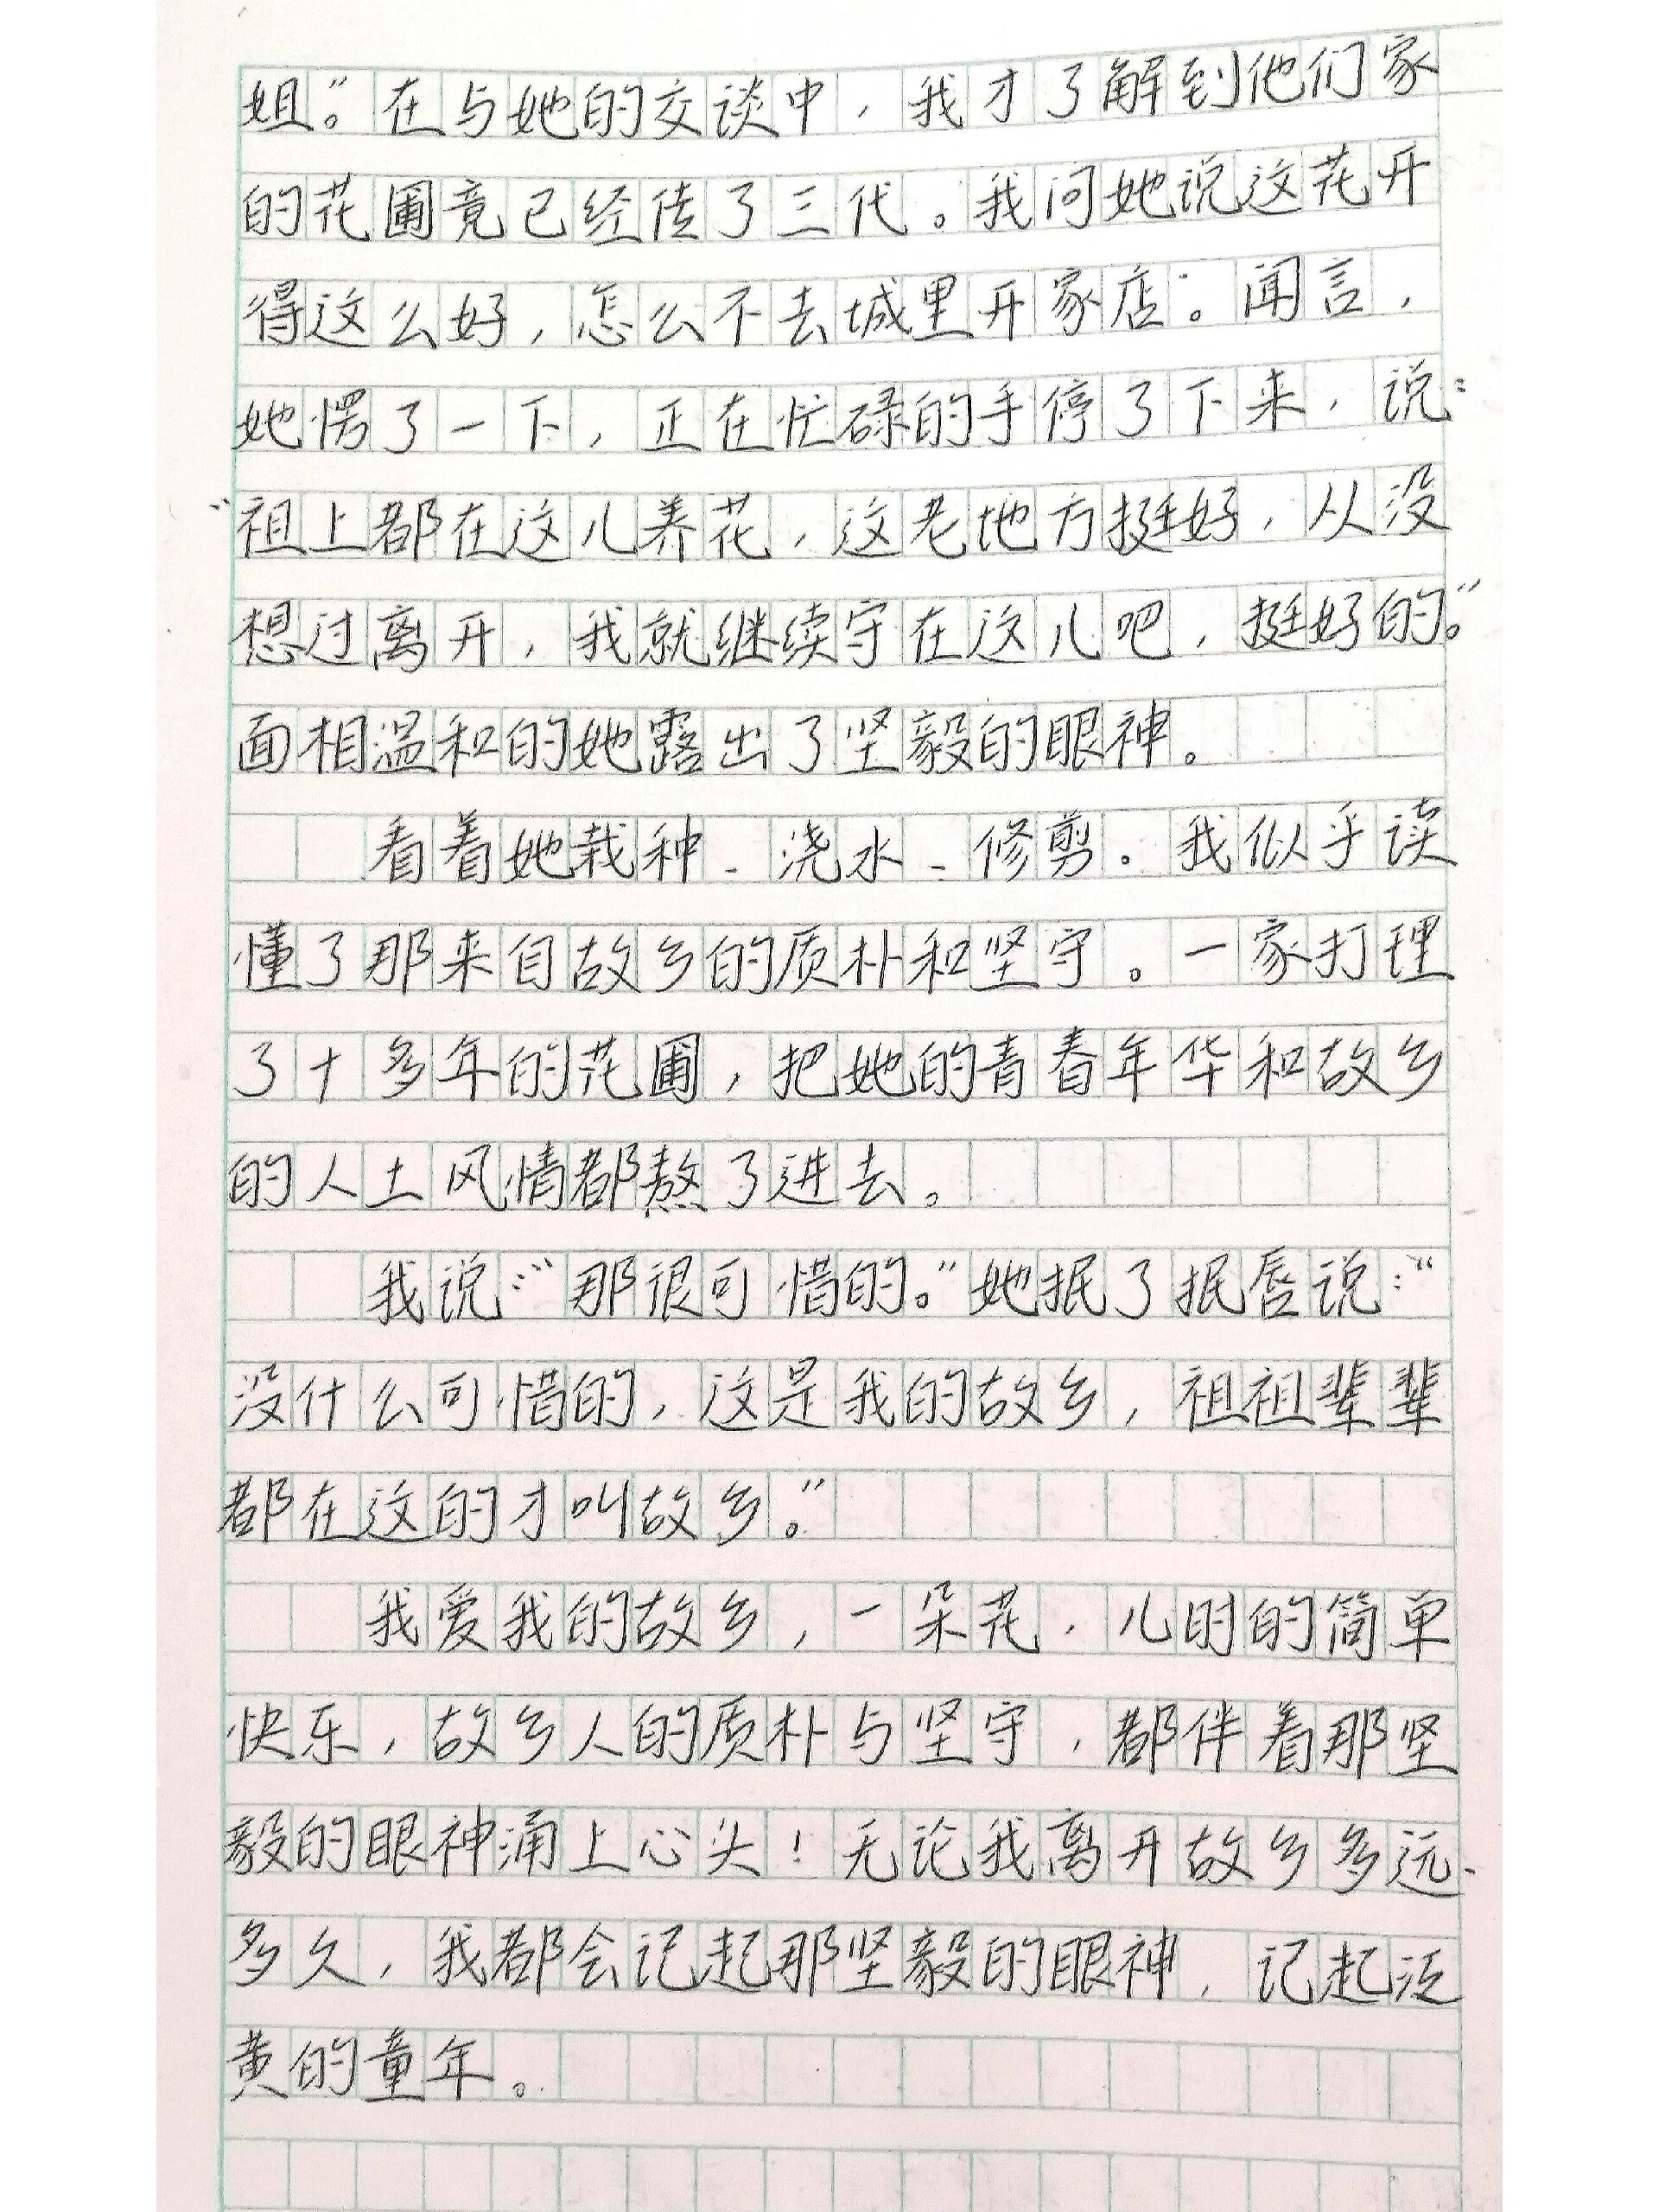 姐。”在与她的交谈中，我才了解到他们家
的花圃竟已经传了三代。我问她说这花开
得这么好，怎么不去城里开家店。闻言，
她愣了一下，正在忙碌的手停了下来，说：
“祖上都在这儿养花，这老地方挺好，从没
想过离开，我就继续守在这儿吧，挺好的。”
面相温和的她露出了坚毅的眼神。
看着她栽种、浇水、修剪。我似乎读
懂了那来自故乡的质朴和坚守。一家打理
了十多年的花圃，把她的青春年华和故乡
的人土风情都熬了进去。
我说：“那很可惜的。”她抿了抿唇说：“
没什么可惜的，这是我的故乡，祖祖辈辈
都在这的才叫故乡。”
我爱我的故乡，一朵花，儿时的简单
快乐，故乡人的质朴与坚守，都伴着那坚
毅的眼神涌上心头！无论我离开故乡多远、
多久，我都会记起那坚毅的眼神，记起泛
黄的童年。